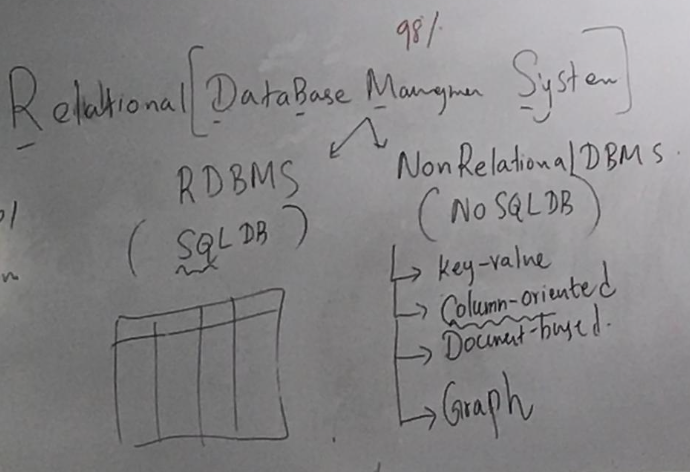 98%
Relational [DataBase Managmen System]
RDBMS
(SQL DB)
NonRelational DBMS.
(NoSQL DB)
Key-value
Column-oriented
Document-based.
Graph